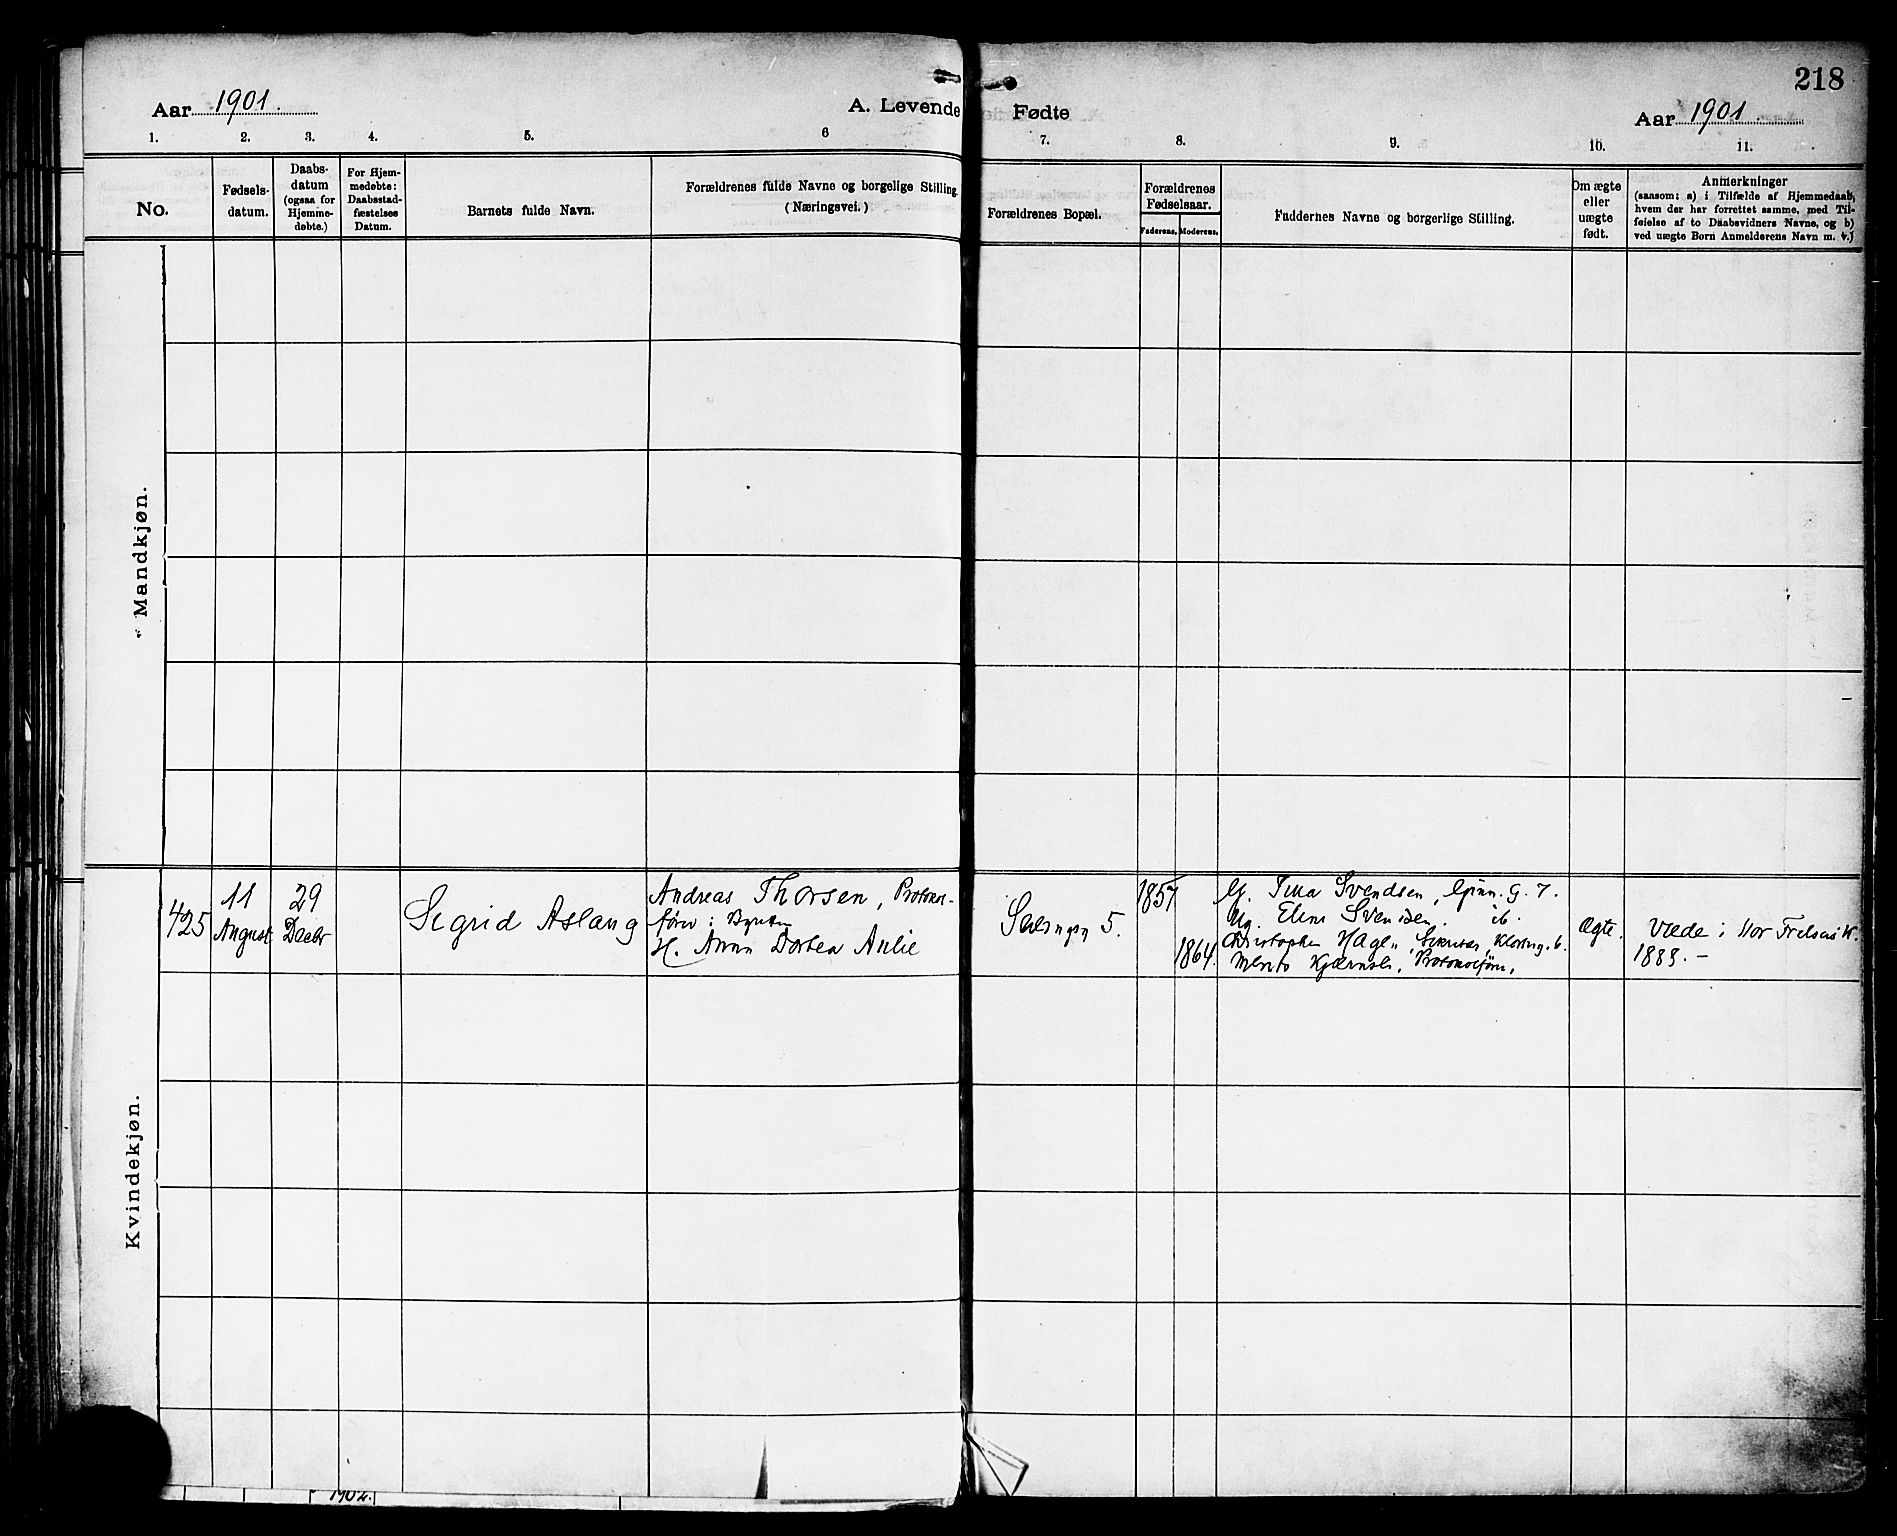 218
Aar 1901.
A. Levende Fødte
Aar 1901.
1. 2. 3. 4. 5. 6 7. 8. 9. 10. 11.
No.
Fødsels-
datum.
Daabs-
datum
(ogsaa for
Hjemme-
døbte.)
For Hjem-
medøbte:
Daabsstad-
fæstelses
Datum.
Barnets fulde Navn.
Forældrenes fulde Navne og borgelige Stilling.
(Næringsvei.)
Forældrenes Bopæl.
Forældrenes
Fødselsaar.
Faderens. Moderens.
Faddernes Navne og borgerlige Stilling.
Om ægte
eller
uægte
født.
Anmerkninger
(saasom: a) i Tilfælde af Hjemmedaab,
hvem der har forrettet samme, med Til-
føielse af to Daabsvidners Navne, og b)
ved uægte Børn Anmelderens Navn m. v.)
Mandkjøn.
Kvindekjøn.
425
11
August
29
Decbr
Sigrid Aslaug
Andreas Thorsen, Protokol-
fører i
H. Anna Dorthea Amlie
5.
1857
1864.
Svendsen, G. 7.
Svendsen ib.
Christopher
Protokolfører,
Ægte.
Viede i Vor Frelsers K.
1889. –
1902.